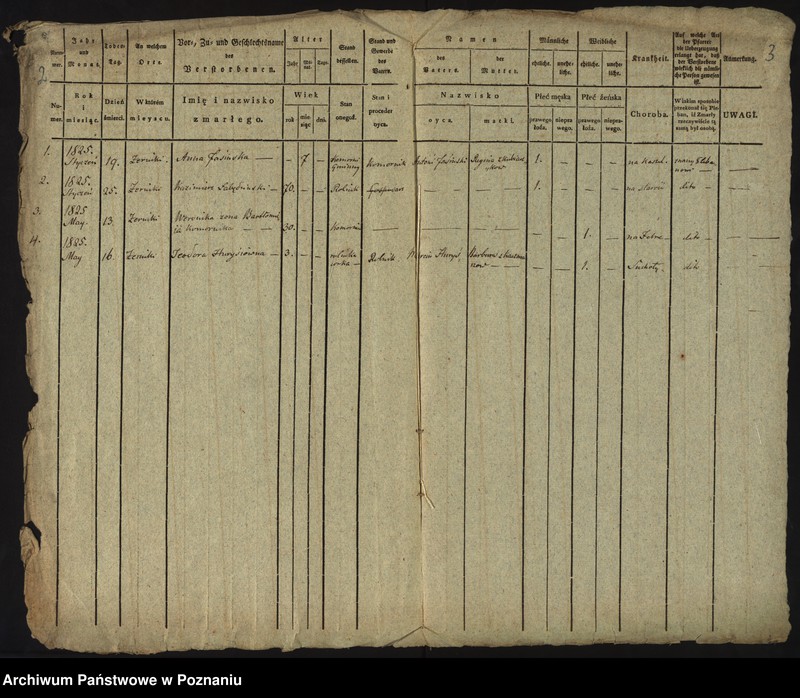 2
3
Num-
mer.
Jahr
und
Monat.
Todes-
Tag.
An welchem
Orte.
Vor-, Zu- und Geschlechtsname
der
Verstorbenen.
Alter
Jahr.
Mo-
nat.
Tage.
Stand
desselben.
Stand und
Gewerbe
des
Vaters.
Namen
des
Vaters.
der
Mutter.
Männliche
eheliche.
unehe-
liche.
Weibliche
eheliche.
unehe-
liche.
Krankheit.
Auf welche Art
der Pfarrer
die Ueberzeugung
erlangt hat, daß
der Verstorbene
wirklich die nämli-
che Person gewesen
ist.
Anmerkung.
Nu-
mer.
Rok
i
miesiąc.
Dzień
śmierci.
W którém
mieyscu.
Imię i nazwisko
zmarłego.
Wiek
rok
mie
siąc
dni.
Stan
onegoż.
Stan i
proceder
oyca.
Nazwisko
oyca.
matki.
Płeć męska
prawego
łoża.
niepra-
wego.
Płeć żeńska
prawego
łoża.
niepra-
wego.
Choroba.
W iakim sposobie
przekonał się Ple-
ban, iż Zmarły
rzeczywiście tą
samą był osobą.
UWAGI.
1. 1825. Styczeń 19. Żerniki Anna Jasińska — — 7 — Komornik Antoni Jasiński 1. — — — na Kaszel —
2. 1825. Styczeń 25. Żerniki Kazimierz — 70. — — Rolnik Gospodarz — — 1. — — — na starość dito —
3. 1825 May. 13. Żerniki Weronika zona Bartłomi
Komornika — 30. — — — — — — — 1. — dito —
4. 1825. May 16. Żerniki Teodora — 3. — — Rolnik Barbara — — 1. — Suchoty. dito —
Archiwum Państwowe w Poznaniu